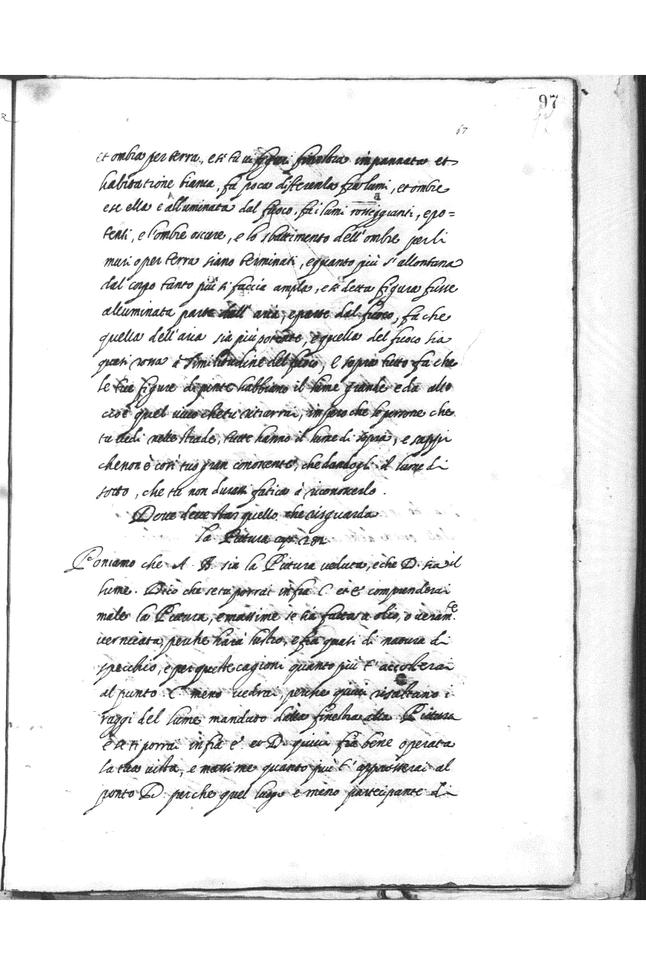 97
57
et ombra per terra, e se tu figuri finestra impannata et
habitatione bianca, fa poca differenza fra lumi, et ombre
e se ella è alluminata dal fuoco, fa i lumi rosseggianti, e po=
tenti, e l'ombre oscure, e lo sbattimento dell'ombre per li
muri o per terra siano terminati, e quanto più s'allontana
dal corpo tanto più si faccia ampla, e se detta figura fusse
alluminata parte dall'aria, e parte dal fuoco, fa che
quella dell'aria sia più potente, e quella del fuoco sia
quasi rossa à similitudine del fuoco, e sopra tutto fa che
le tue figure dipinte habbiano il lume grande e da alto
cioè quel vivo che tu ritrarrai, imperoche le persone che
tu vedi nelle strade, tutte hanno il lume di sopra, e sappi
che non è così tuo gran conoscente, che dandogli il lume di
sotto, che tu non durassi fatica à riconoscerlo.
Dove deve star quello che risguarda
la Pittura cap:
Poniamo che A. B. sia la Pittura veduta, e che D. sia il
lume. Dico che se tu porrai infra C. et E. comprenderai
male la Pittura, e massime se sia fatta a olio, o veram.te
verniciata, perche harà lustro, e fia quasi di natura di
specchio, e per queste cagioni quanto più t'accosterai
al punto C. meno vedrai, perche quivi risaltano i
raggi del lume mandato dalla finestra alla Pittura
e se ti porrai infra E. et D. quivi fia bene operata
la tua vista, e massime quanto più t'appresserai al
ponto D. perche quel luogo e meno partecipante di